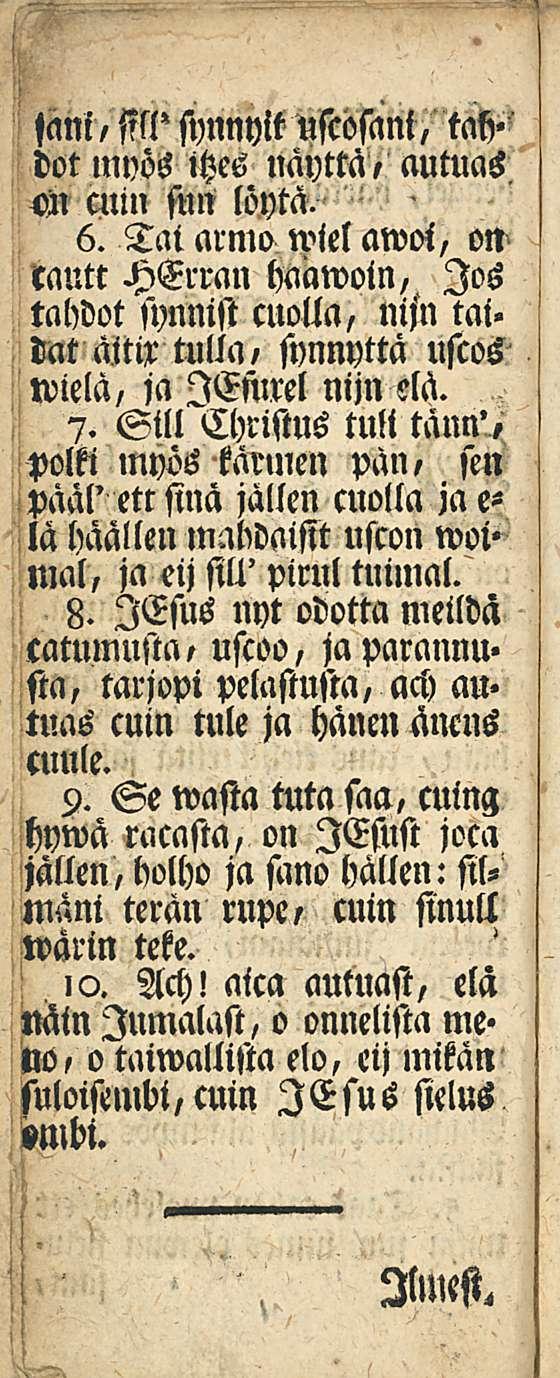 sani, sill' synnyit uscosani, tah-
dot myös itzes näyttä, autuas
on cuin sun löytä.
6. Tai armo wiel awoi, on
cautt HErran haawoin, Jos
tahdot synnist cuolla, nijn tai-
dat äitix tulla, synnyttä uscos
wielä, ja JEsuxel nijn elä.
7. Sill Christus tuli tänn',
polki myös kärmen pän, sen
pääl' ett sinä jällen cuolla ja e-
lä häällen mahdaisit uscon woi-
mal, ja eij sill' pirul tuimal.
8. JEsus nyt odotta meildä
catumusta, uscoo, ja parannu-
sta, tarjopi pelastusta, ach au-
tuas cuin tule ja hänen änens
cuule.
9. Se wasta tuta saa, cuing
hywä racasta, on JEsust joca
jällen, holho ja sano hällen: sil-
mäni terän rupe, cuin sinull
wärin teke.
10. Ach! aica autuast, elä
näin Jumalast, o onnelista me-
no, o taiwallista elo, eij mikän
suloisembi, cuin JEsus sielus
ombi.
Ilmest.